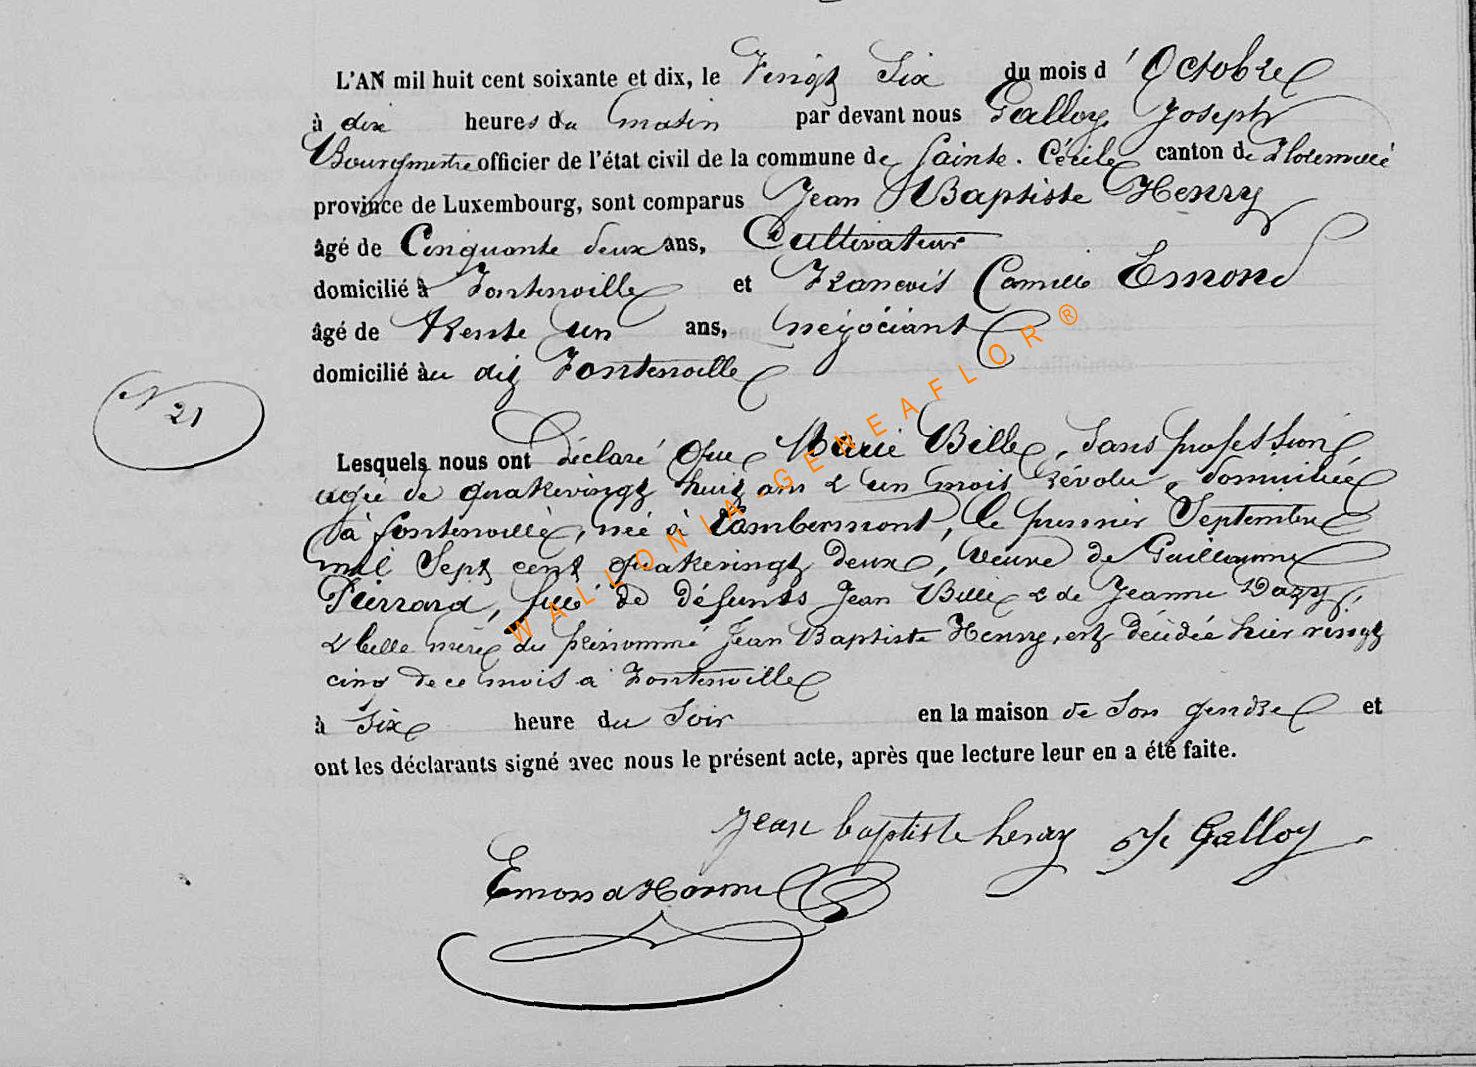 L'AN mil huit cent soixante et dix, le Vingt Six du mois d'Octobre
à dix heures du matin par devant nous Galloy Joseph
Bourgmestre officier de l'état civil de la commune de Sainte. Cécile canton de Florenville
province de Luxembourg, sont comparus Jean Baptiste Henry
âgé de Cinquante deux ans, Cultivateur
domicilié à Fontenoille et François Camille Emond
âgé de trente un ans, négociant
domicilié au dit Fontenoille
N 21
Lesquels nous ont déclaré que Marie Bille, sans profession,
agée de quatrevingt huit ans & un mois révolu, domiciliée
à fontenoille, née à Lambermont, le premier Septembre
mil Sept cent quatrevingt deux, veuve de Guillaume
Pierrard, fille de défunts Jean Bille & de Jeanne Dazy,
& belle mère du prénommé Jean Baptiste Henry, est décédée hier vingt
cinq de ce mois a Fontenoille
à Six heure du Soir en la maison de Son gendre et
ont les déclarants signé avec nous le présent acte, après que lecture leur en a été faite.
Jean baptiste henry J Galloy
Emond
WALLONIA-GENEAFLOR ®